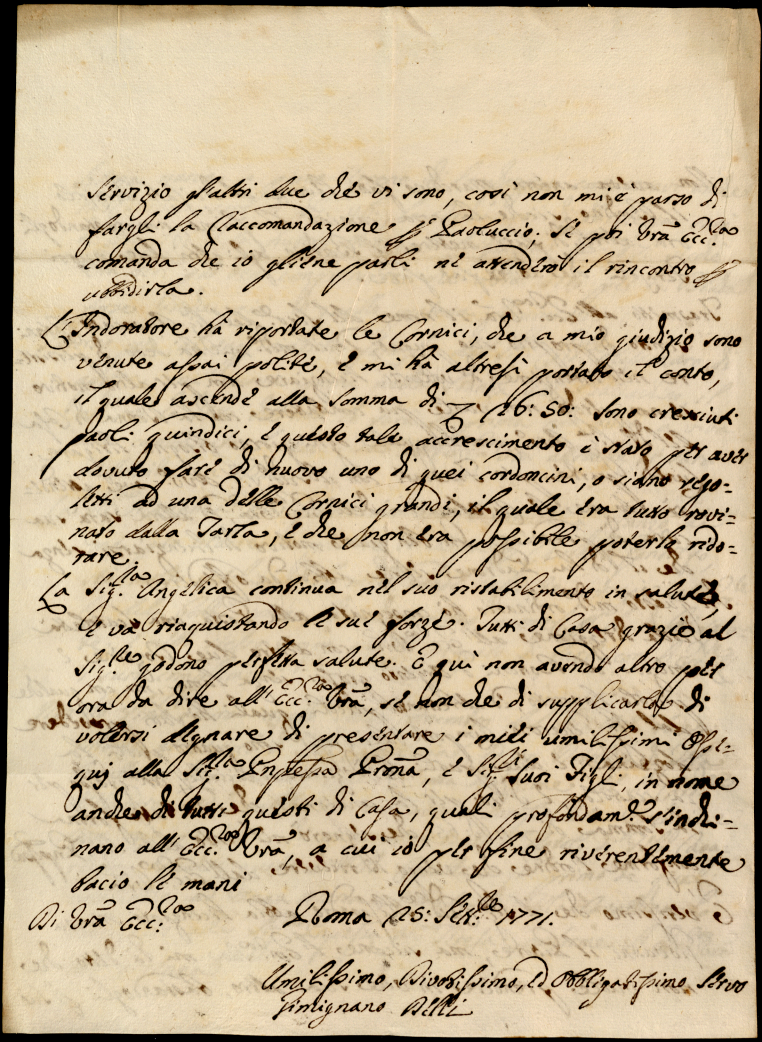 servizio gl'altri due che vi sono, così non mi è parso di
fargli la Raccomandazione per Paoluccio; se poi Vrã Ecc.za
comanda che io gliene parli ne attenderò il rincontro per
ubbidirla.
L'Indoratore hà riportate le Cornici, che a mio giudizio sono
venute assai polite, e mi hà altresì portato il conto,
il quale ascende alla somma di 26: 50: sono cresciuti
paoli quindici, e questo tale accrescimento è stato per aver
dovuto fare di nuovo uno di quei cordoncini, o siano rego-
letti ad una delle Cornici grandi, il quale era tutto rovi-
nato dalla Tarla, e che non era possibile poterlo rido-
rare.
La Sig.ra Angelica continua nel suo ristabilimento in salute,
e và riaquistando le sue forze. Tutti di Casa grazie al
Sig.re godono perfetta salute. E quì non avendo altro per
ora da dire all'Ecc.za Vrã, se non che di supplicarla di
volersi degnare di presentare i miei umilissimi Osse-
quj alla Sig.ra Pnpessa Pronã, e Sig.ri suoi Figli, in nome
anche di tutti questi di Casa, quali profondam.e s'inchi-
nano all'Ecc.za Vrã, a cui io per fine riverentemente
bacio le mani
Di Vrã Ecc.za Roma 25: Sett.bre 1771.
Umilissimo, Divotissimo, ed Obbligatissimo Servo
Gimignano Belli